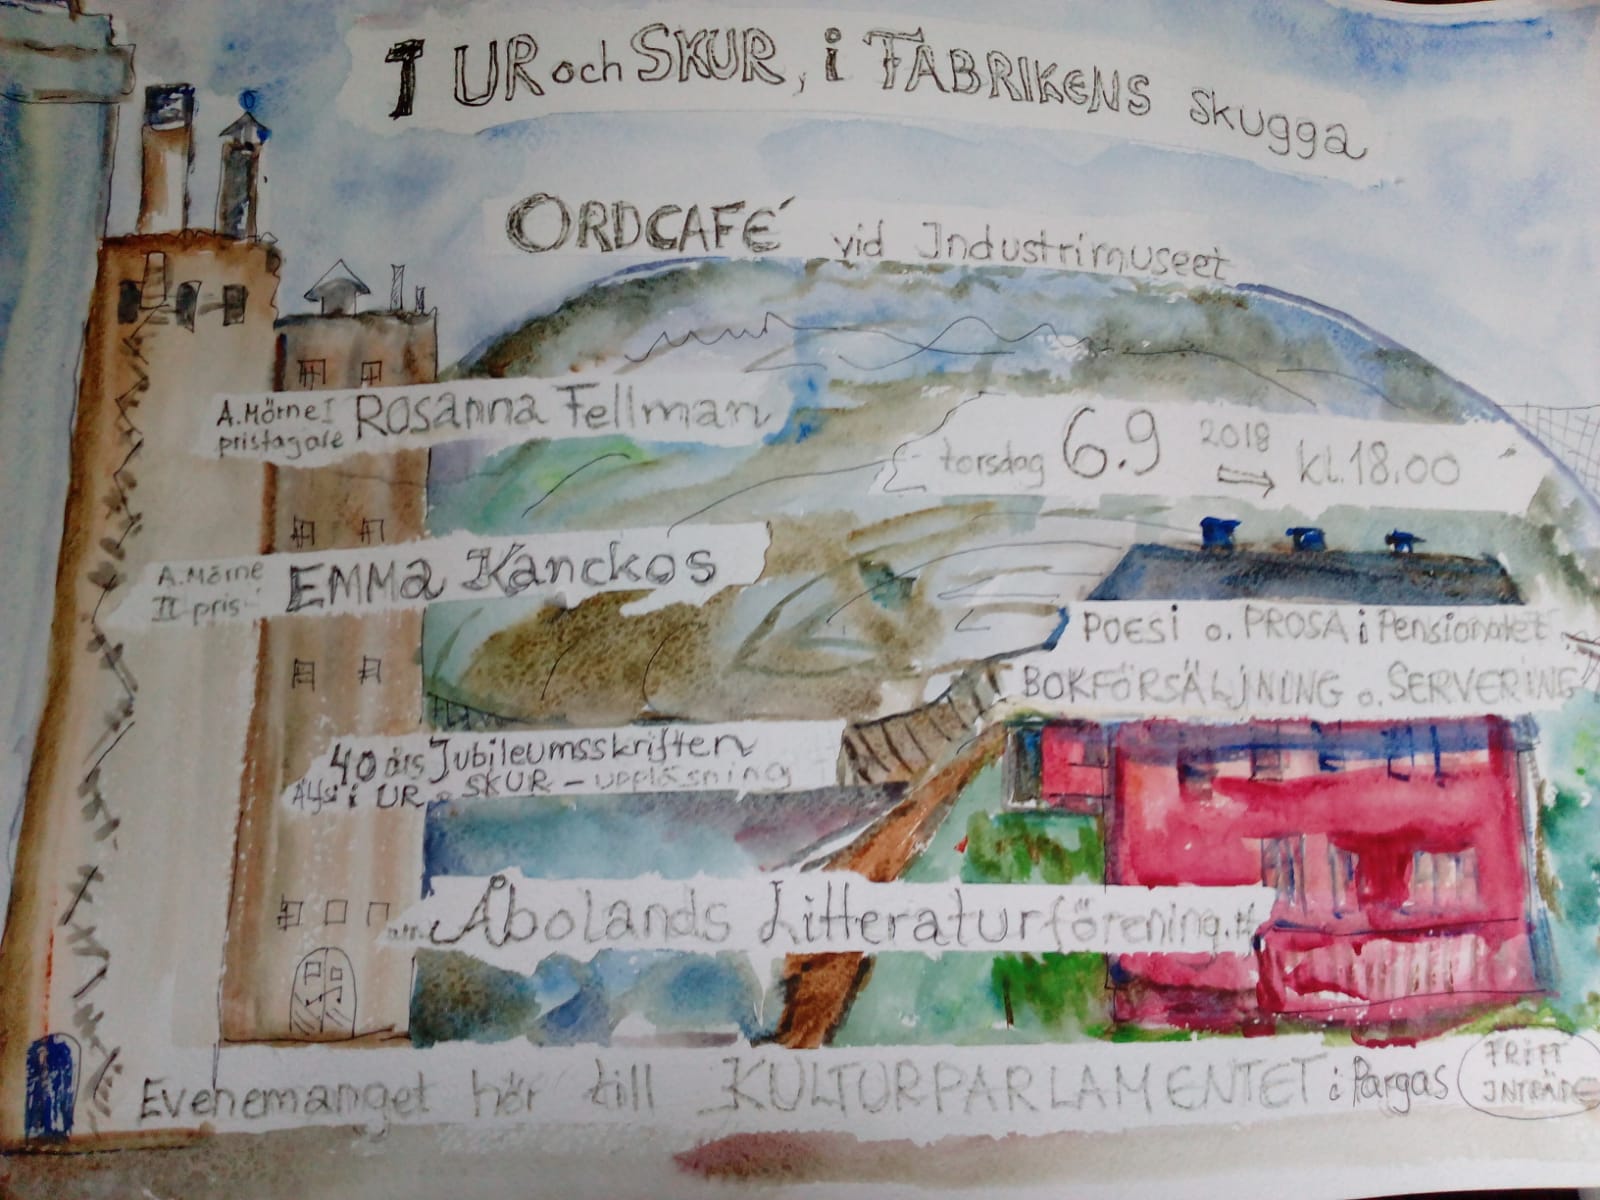 I UR och SKUR, i FABRIKENS skugga
ORDCAFÉ vid Industrimuseet
A. Mörne I pristagare ROSANNA Fellman
torsdag 6.9 2018 ⇒ kl. 18.00
A. Mörne II pris EMMA Kanckos
POESI o. PROSA i Pensionatet
BOKFÖRSÄLJNING o. SERVERING
40 års Jubileumsskriften
i UR o SKUR - uppläsning
Åbolands Litteraturförening.
Evenemanget hör till KULTURPARLAMENTET i Pargas
FRITT
INTRÄDE